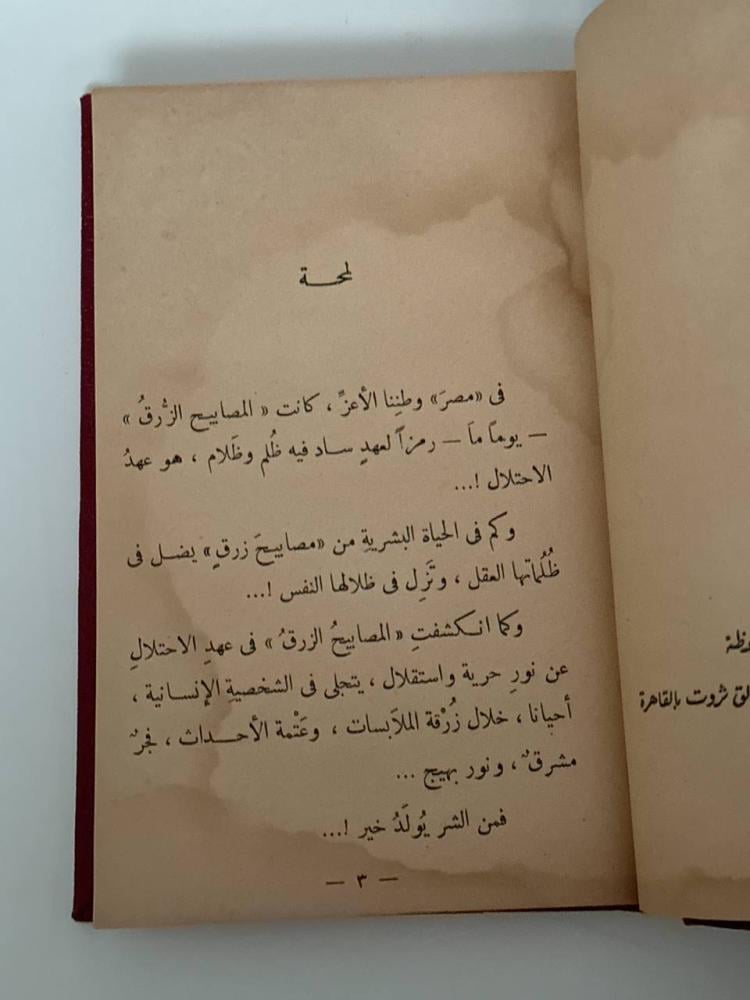 لمحة
فى «مصرَ» وطنِنا الأعزِّ ، كانت « المصابيح الزُّرقُ »
— يوماً ماَ — رمزاً لعهدٍ ساد فيه ظُلم وظَلام ، هو عهدُ
الاحتلال !...
وكم فى الحياة البشريةِ من «مصابيحَ زرقٍ» يضل فى
ظُلُماتها العقل ، وتَزِل فى ظلالها النفس !...
وكما انكشفتِ «المصابيحُ الزرقُ» فى عهدِ الاحتلالِ
عن نورِ حرية واستقلال ، يتجلى فى الشخصيةِ الإنسانية ،
أحيانا ، خلال زُرْقة الملاَبسات ، وعَتْمة الأحداث ، فجرٌ
مشرقٌ ، ونور بهيج ...
فمن الشر يُولَدُ خير !...
— ٣ —
ثروت بالقاهرة